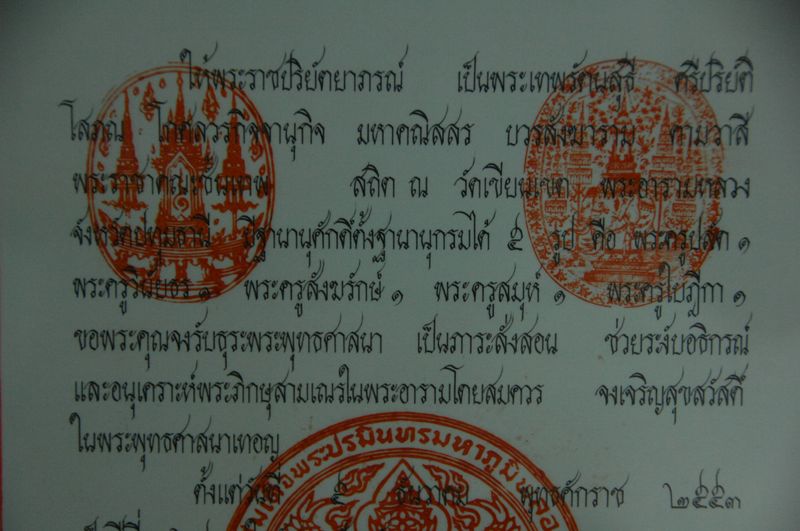 ให้พระราชปริยัตยาภรณ์ เป็นพระเทพรัตนสุธี ศรีปริยัติ
โสภณ โกศลวรกิจจานุกิจ มหาคณิสสร บวรสังฆาราม คามวาสี
พระราชาคณะชั้นเทพ สถิต ณ วัดเขียนเขต พระอารามหลวง
จังหวัดปทุมธานี มีฐานานุศักดิ์ตั้งฐานานุกรมได้ ๕ รูป คือ พระครูปลัด ๑
พระครูวินัยธร ๑ พระครูสังฆรักษ์ ๑ พระครูสมุห์ ๑ พระครูใบฎีกา ๑
ขอพระคุณจงรับธุระพระพุทธศาสนา เป็นภาระสั่งสอน ช่วยระงับอธิกรณ์
และอนุเคราะห์พระภิกษุสามเณรในพระอารามโดยสมควร จงเจริญสุขสวัสดิ์
ในพระพุทธศาสนาเทอญ
พระปรมินทรมหาภูมิพล
ตั้งแต่วันที่ ๕ ธันวาคม พุทธศักราช ๒๕๕๓